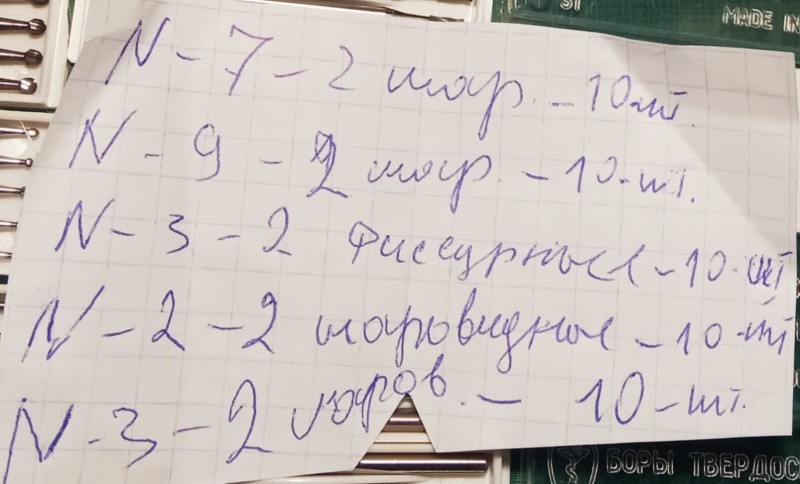 51
MADE IN
N-7-2 шар. - 10-шт.
N-9-2 шар. - 10-шт.
N-3-2 Фиссурные - 10-шт
N-2-2 шаровидные - 10-шт
N-3-2 шаров. - 10-шт.
БОРЫ ТВЕРДОС